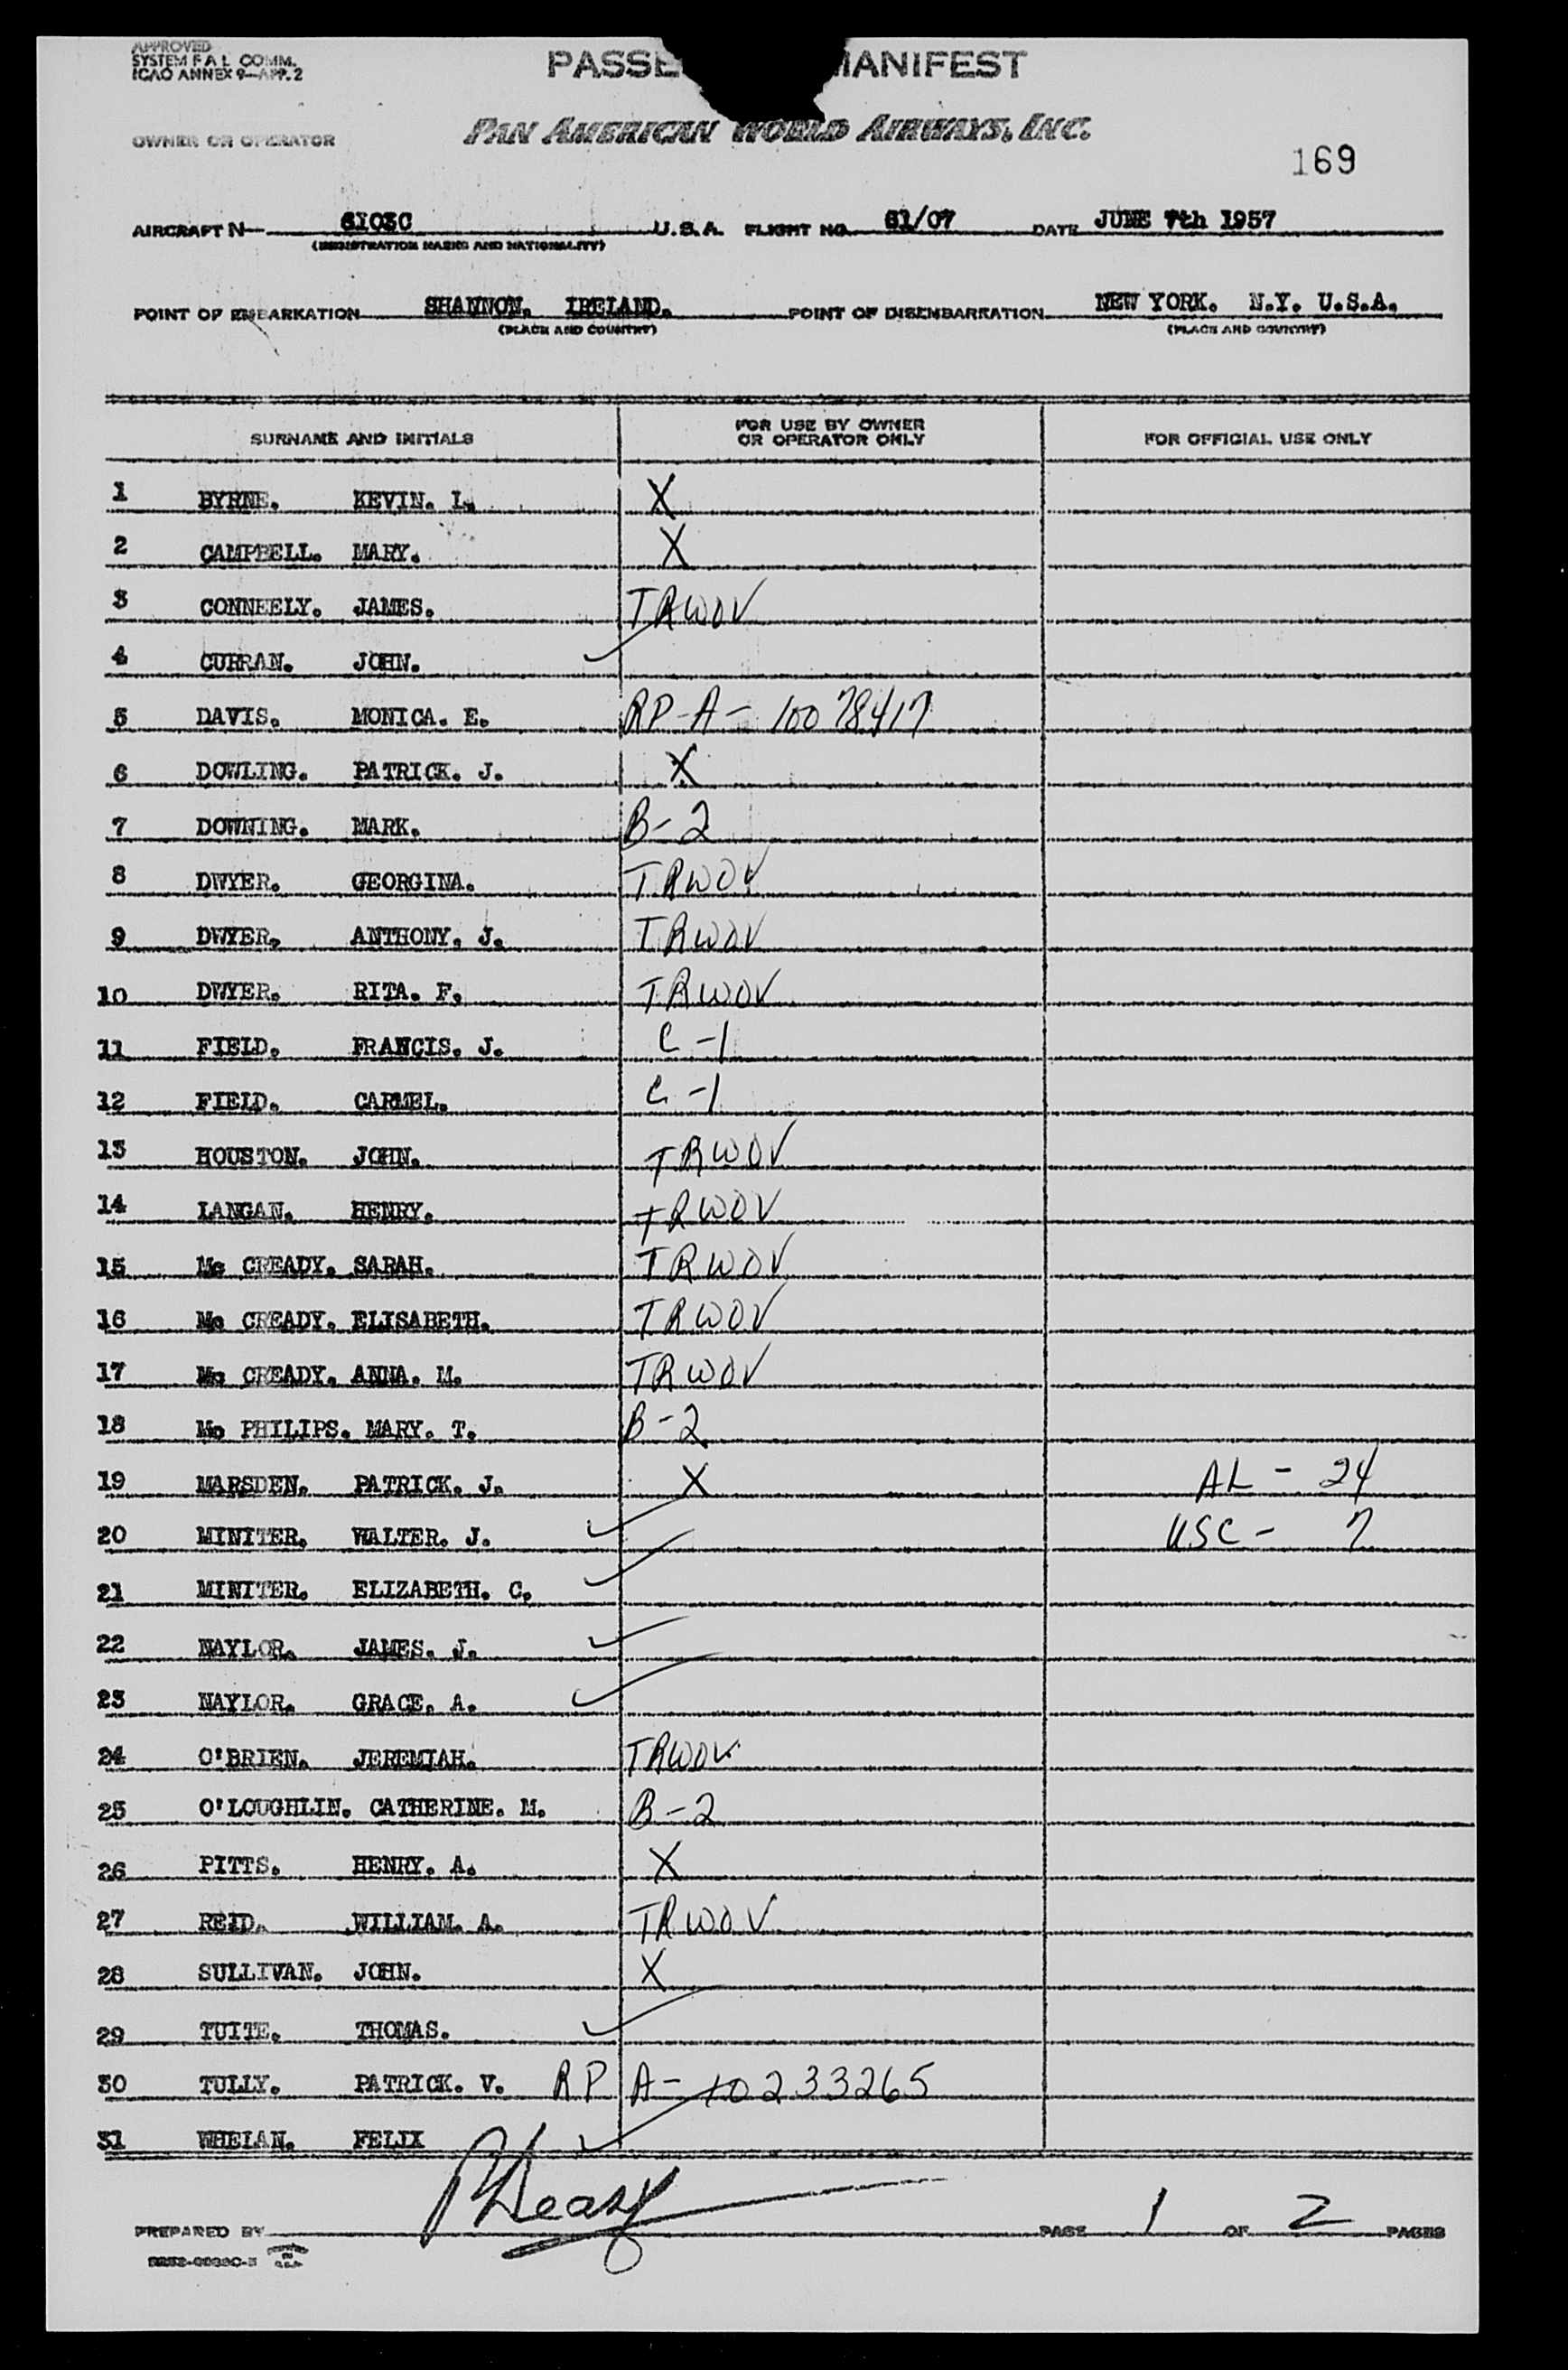 APPROVED
SYSTEM F A L COMM.
ICAO ANNEX 9—APP. 2
PASSE ANIFEST
OWNER OR OPERATOR PAN AMERICAN WORLD AIRWAYS, INC.
169
AIRCRAFT N— 6103C U.S.A. FLIGHT NO. 61/07 DATE JUNE 7th 1957
(REGISTRATION MARKS AND NATIONALITY)
POINT OF EMBARKATION SHANNON. IRELAND. POINT OF DISEMBARKATION NEW YORK. N.Y. U.S.A.
(PLACE AND COUNTRY) (PLACE AND COUNTRY)
SURNAME AND INITIALS FOR USE BY OWNER OR OPERATOR ONLY FOR OFFICIAL USE ONLY
1 BYRNE. KEVIN. I. X
2 CAMPBELL. MARY. X
3 CONNEELY. JAMES. TRWOV
4 CURRAN. JOHN. ✓
5 DAVIS. MONICA. E. RP-A- 10078417
6 DOWLING. PATRICK. J. X
7 DOWNING. MARK. B-2
8 DWYER. GEORGINA. TRWOV
9 DWYER. ANTHONY. J. TRWOV
10 DWYER. RITA. F. TRWOV
11 FIELD. FRANCIS. J. C-1
12 FIELD. CARMEL. C-1
13 HOUSTON. JOHN. TRWOV
14 LANGAN. HENRY. TRWOV
15 Mc CREADY. SARAH. TRWOV
16 Mc CREADY. ELISABETH. TRWOV
17 Mc CREADY. ANNA. M. TRWOV
18 Mc PHILIPS. MARY. T. B-2
19 MARSDEN. PATRICK. J. X AL - 24
20 MINITER. WALTER. J. ✓ USC - 7
21 MINITER. ELIZABETH. C. ✓
22 NAYLOR. JAMES. J. ✓
23 NAYLOR. GRACE. A. ✓
24 O'BRIEN. JEREMIAH. TRWOV
25 O'LOUGHLIN. CATHERINE. M. B-2
26 PITTS. HENRY. A. X
27 REID. WILLIAM. A. TRWOV
28 SULLIVAN. JOHN. X
29 TUITE. THOMAS. ✓
30 TULLY. PATRICK. V. RP A- 10233265
31 WHELAN. FELIX ✓
PREPARED BY PAGE 1 OF 2 PAGES